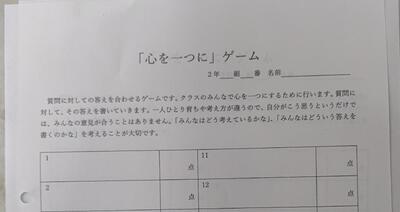 「心を一つに」ゲーム
２年＿＿組＿＿番 名前＿＿＿＿＿＿＿＿
質問に対しての答えを合わせるゲームです。クラスのみんなで心を一つにするために行います。質問に
対して、その答えを書いていきます。一人ひとり育ちや考え方が違うので、自分がこう思うというだけで
は、みんなの意見が合うことはありません。「みんなはどう考えているかな」、「みんなはどういう答えを
書くのかな」を考えることが大切です。
1 点 11 点
2 点 12 点